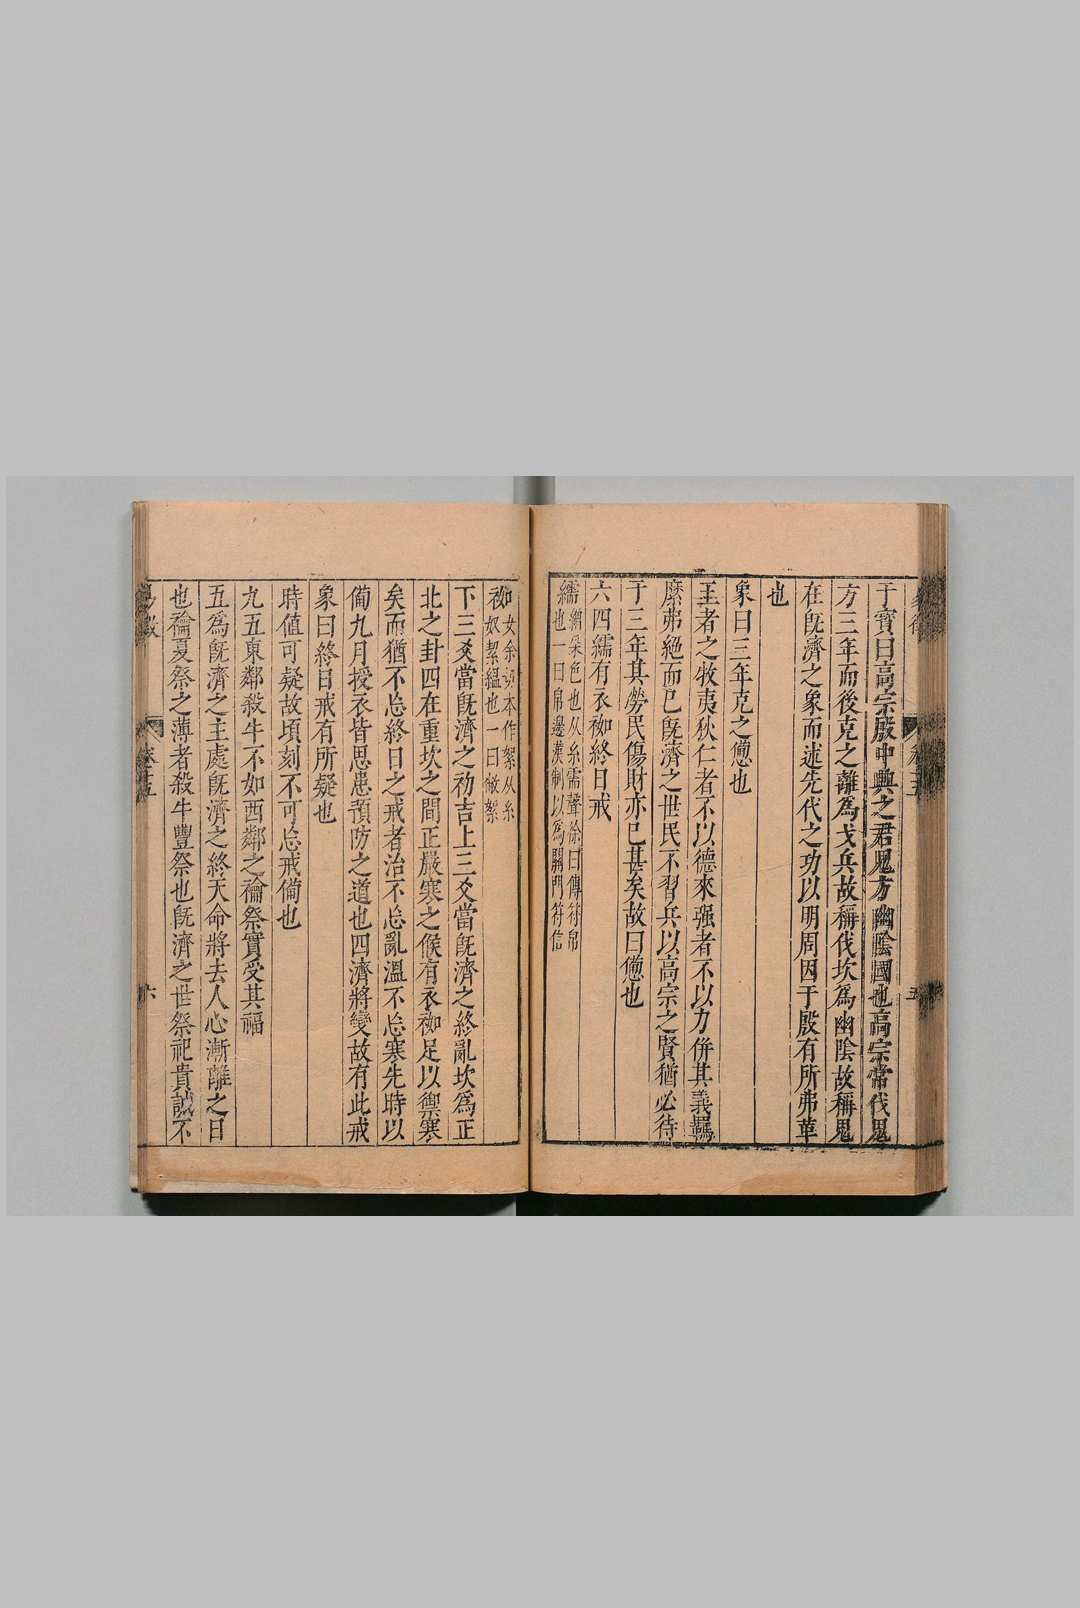 干寶曰高宗殷中興之君鬼方幽陰國也高宗常伐鬼
方三年而後克之離爲戈兵故稱伐坎爲幽陰故稱鬼
在旣濟之象而述先代之功以明周因于殷有所弗革
也
象曰三年克之憊也
王者之牧夷狄仁者不以德來强者不以力併其義羈
縻弗絕而已旣濟之世民不習兵以高宗之賢猶必待
于三年其勞民傷財亦已甚矣故曰憊也
六四繻有衣袽終日戒
繻繒采色也从糸需聲徐曰傳符帛
也一曰帛邊漢制以爲關門符信
袽女余切本作絮从糸
奴絜緼也一曰敝絮
下三爻當旣濟之初吉上三爻當旣濟之終亂坎爲正
北之卦四在重坎之間正嚴寒之候有衣袽足以禦寒
矣而猶不忘終日之戒者治不忘亂溫不忘寒先時以
備九月授衣皆思患預防之道也四濟將變故有此戒
象曰終日戒有所疑也
時值可疑故頃刻不可忘戒備也
九五東鄰殺牛不如西鄰之禴祭實受其福
五爲旣濟之主處旣濟之終天命將去人心漸離之日
也禴夏祭之薄者殺牛豐祭也旣濟之世祭祀貴誠不
卷十五
六